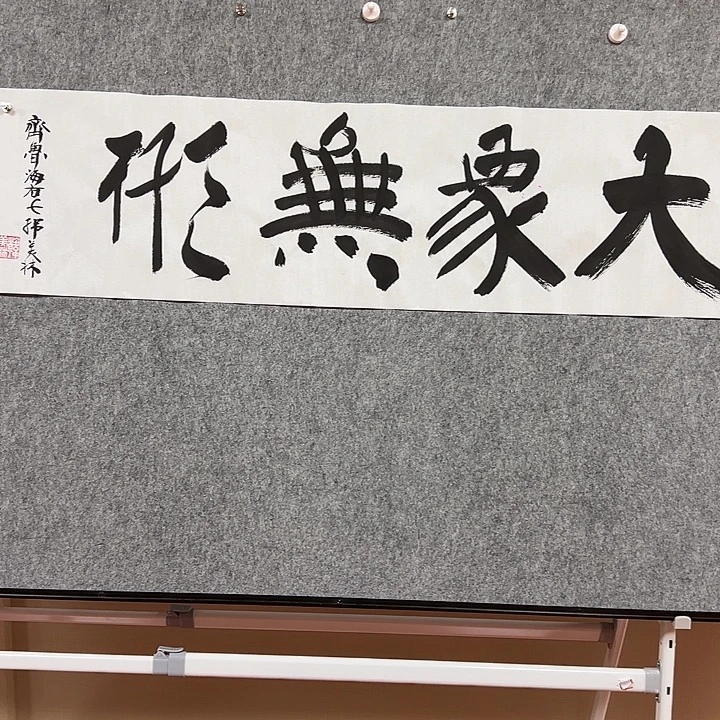 大象無形
齊魯海右七